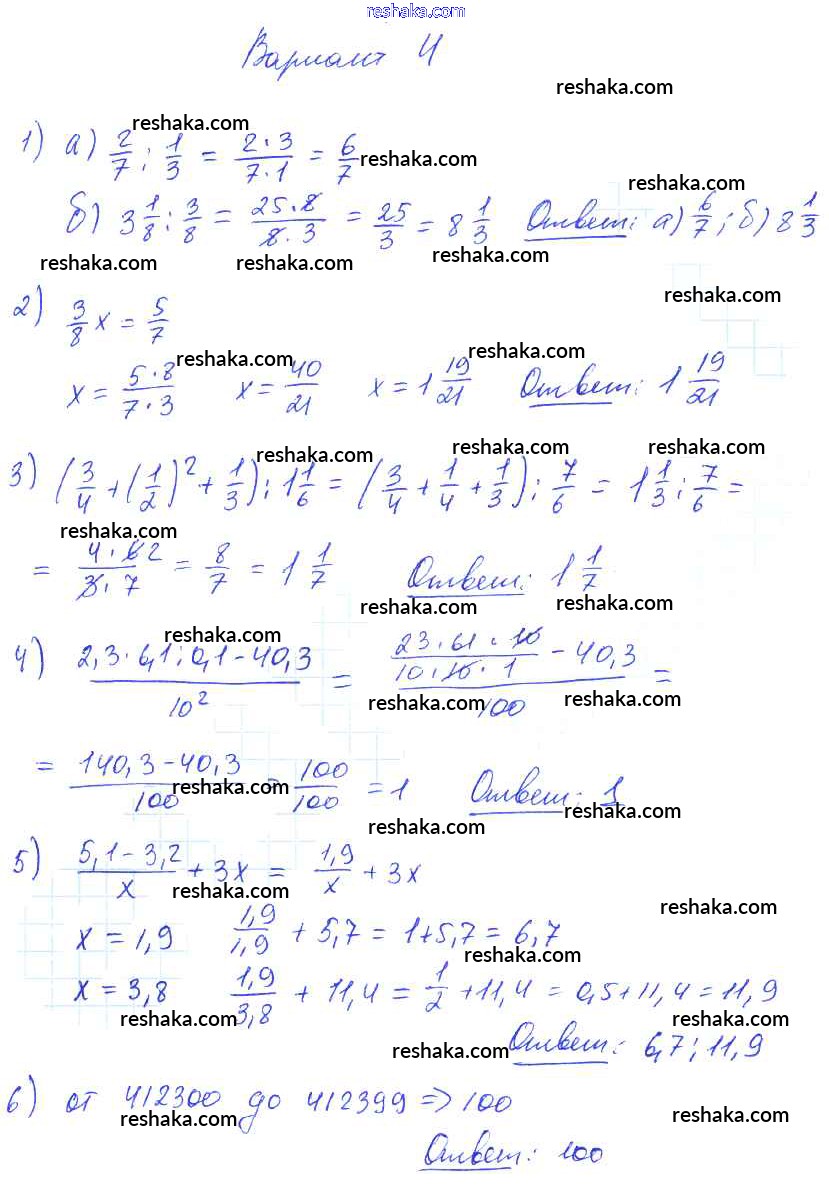 reshaka.com
Вариант 4
reshaka.com
1) а) 2/7 : 1/3 = 2·3/7·1 = 6/7
reshaka.com reshaka.com reshaka.com
б) 3 1/8 : 3/8 = 25·8/8·3 = 25/3 = 8 1/3 Ответ: а) 6/7; б) 8 1/3
reshaka.com reshaka.com reshaka.com
reshaka.com
2) 3/8 x = 5/7
reshaka.com reshaka.com
x = 5·8/7·3 x = 40/21 x = 1 19/21 Ответ: 1 19/21
reshaka.com reshaka.com reshaka.com
3) (3/4 + (1/2)² + 1/3) : 1 1/6 = (3/4 + 1/4 + 1/3) : 7/6 = 1 1/3 : 7/6 =
reshaka.com
= 4·6 2/3·7 = 8/7 = 1 1/7 Ответ: 1 1/7
reshaka.com reshaka.com
reshaka.com
4) 2,3·6,1:0,1-40,3/10² = 23·61·10/10·10·1 - 40,3/100 =
reshaka.com reshaka.com
= 140,3-40,3/100 = 100/100 = 1 Ответ: 1
reshaka.com reshaka.com
reshaka.com
5) 5,1-3,2/x + 3x = 1,9/x + 3x
reshaka.com reshaka.com
x = 1,9 1,9/1,9 + 5,7 = 1+5,7 = 6,7
reshaka.com
x = 3,8 1,9/3,8 + 11,4 = 1/2 + 11,4 = 0,5+11,4 = 11,9
reshaka.com reshaka.com
Ответ: 6,7; 11,9
reshaka.com
6) от 412300 до 412399 => 100
reshaka.com reshaka.com
Ответ: 100